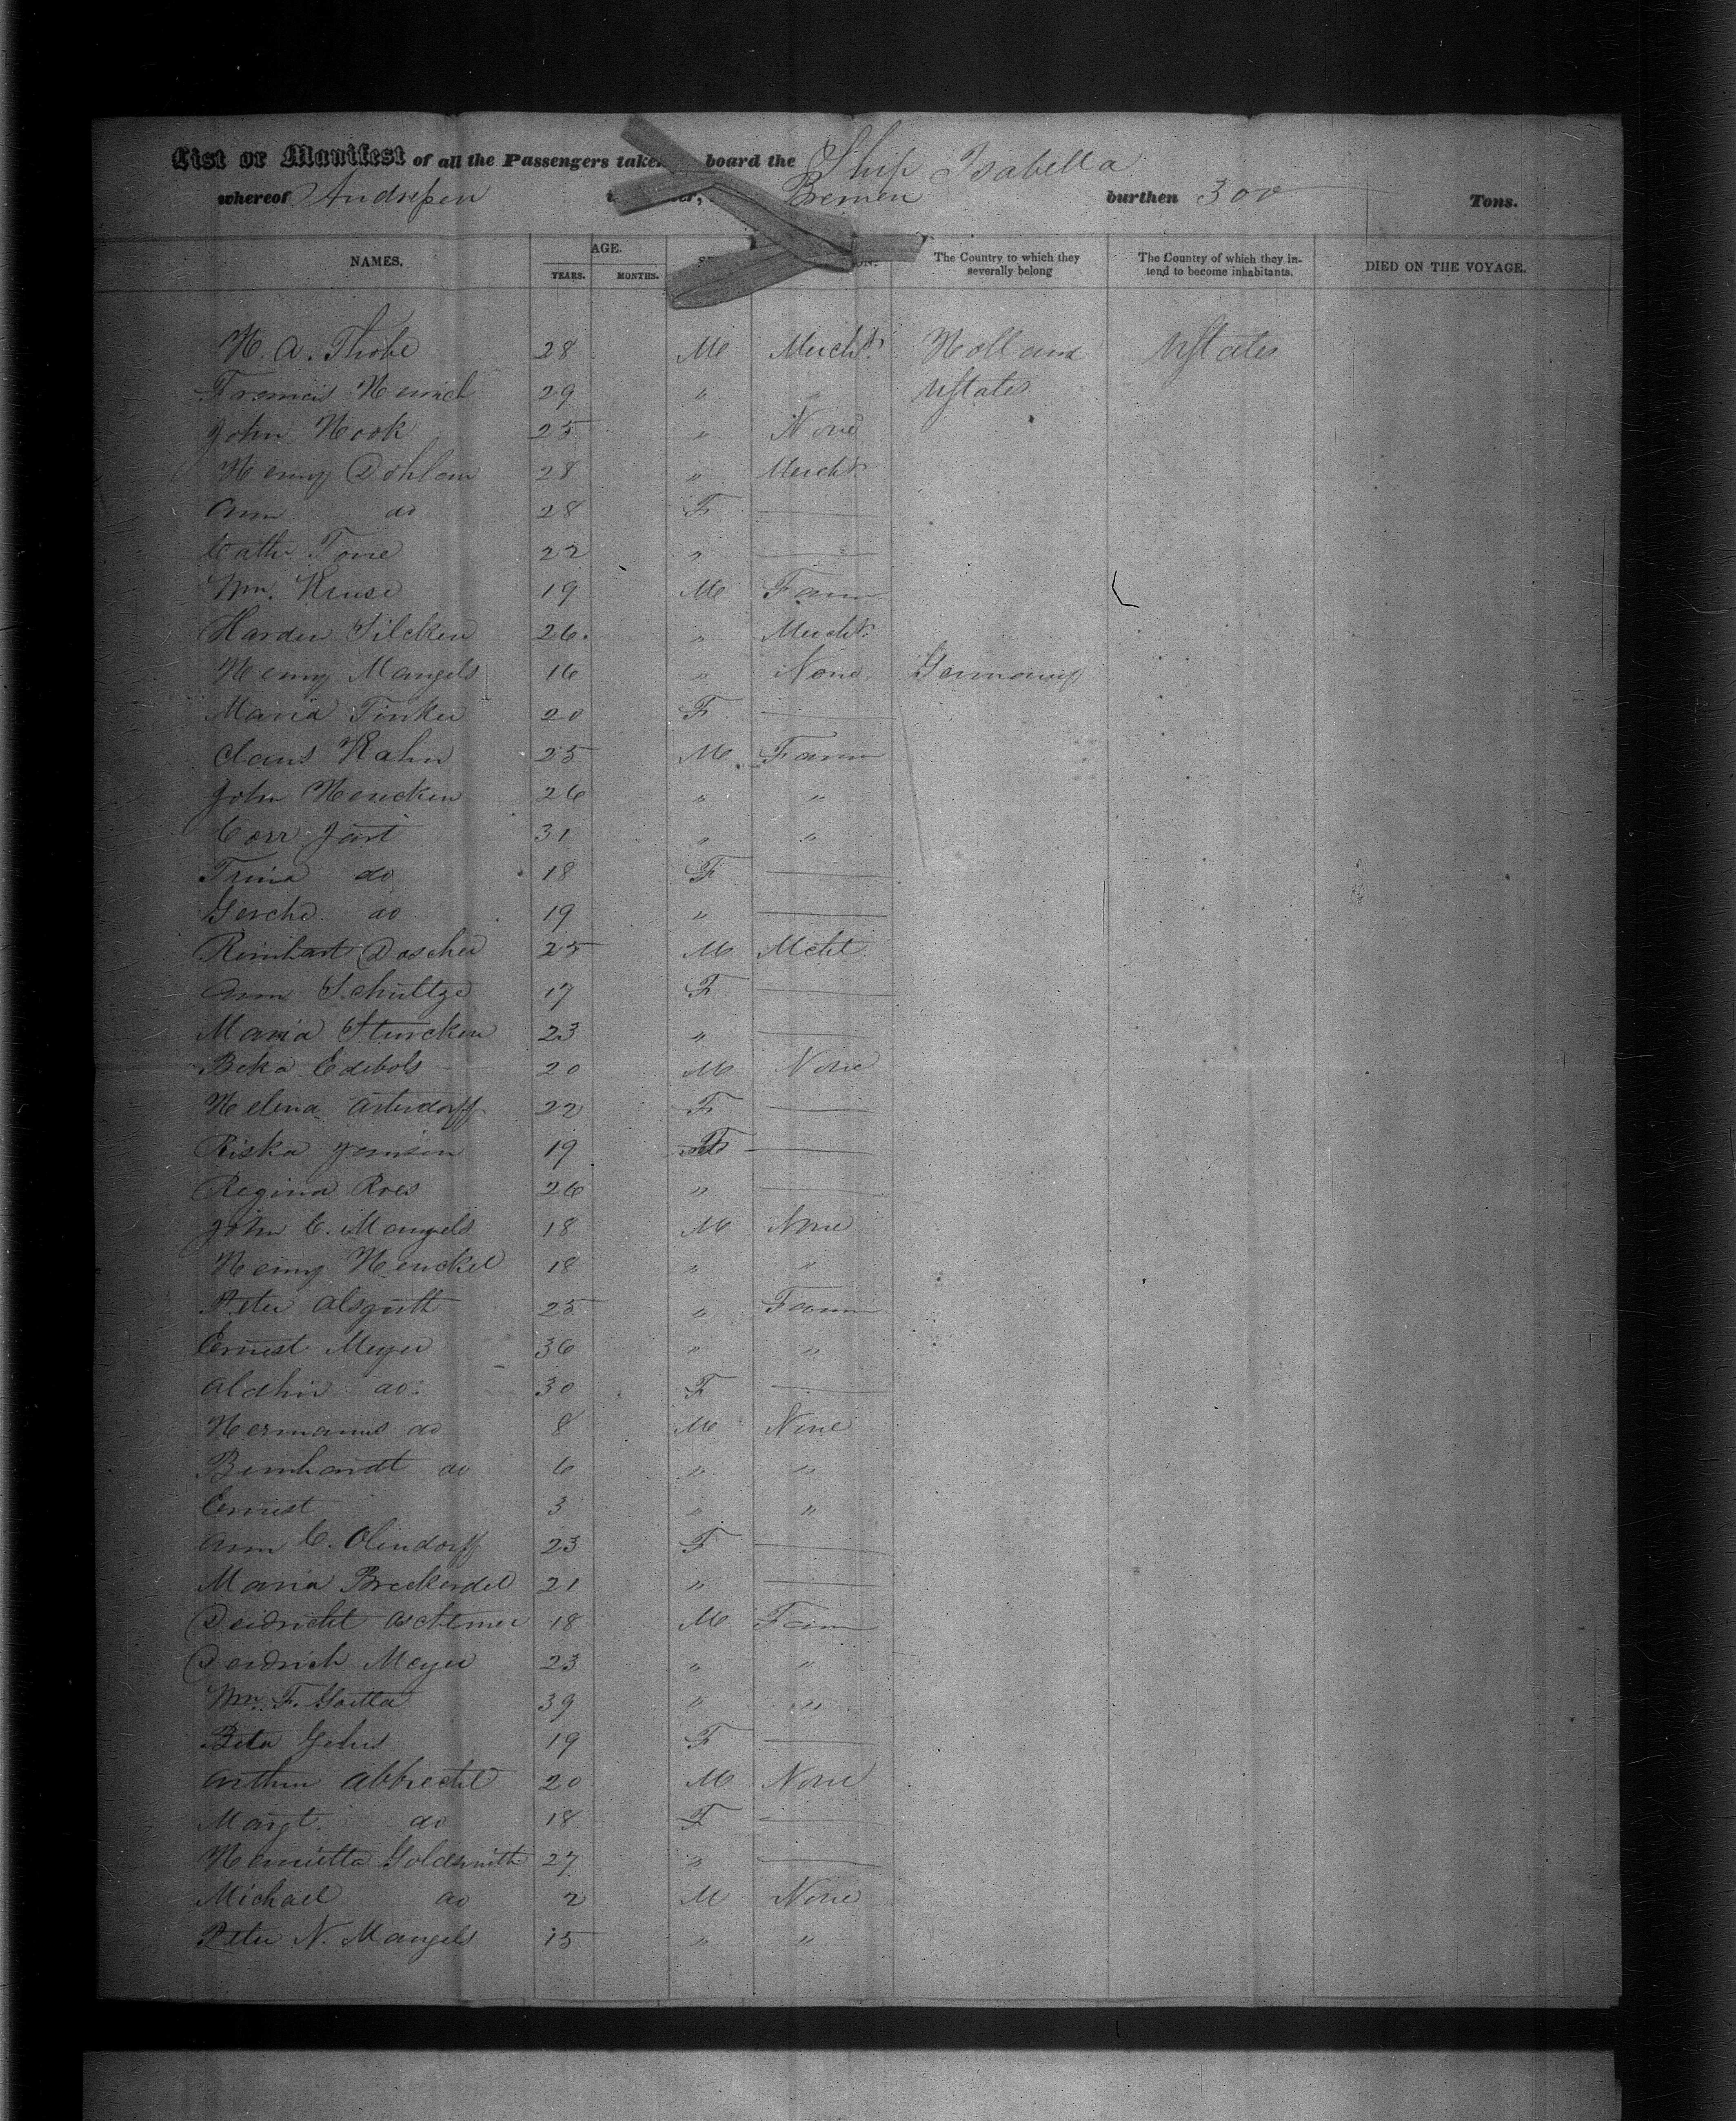 List or Manifest of all the Passengers taken board the Ship Isabella
whereof Andressen Bremen burthen 300 Tons.
NAMES. AGE. YEARS. MONTHS. The Country to which they severally belong The Country of which they intend to become inhabitants. DIED ON THE VOYAGE.
H. A. Thobe 28 M Mercht. Holland UStates
Francis Heinrich 29 " " UStates
John Hook 25 " None
Henry Dohlam 28 " Mercht.
Ann do 28 F
Cath. Tone 22 "
Wm. Kruse 19 M Farm
Harden Silcken 26. " Mercht.
Henry Mangels 16 " None Germany
Maria Tinken 20 F
Claus Hahn 25 M Farm
John Hencken 26 " "
Corr Jost 31 " "
Trina do 18 F
Gesche do 19 "
Reinhart Doscher 25 M Mcht.
Ann Schultze 17 F
Maria Sturcken 23 "
Beka Edebols 20 M None
Helena 22 F
Riska Jonssen 19 F
Regina Roes 26 "
John C. Mangels 18 M None
Henry Henckel 18 " "
Peter Alsguth 25 " Farm
Ernest Meyer 36 " "
do. 30 F
Hermanus do 8 M None
Bernhardt do 6 " "
Ernest 3 " "
Ann C. Olendorff 23 F
Maria Breckendel 21 "
Deidricht 18 M Farm
Deidrich Meyer 23 " "
Wm. F. Goetta 39 " "
Beta Gehrs 19 F
Arthur Abbrecht 20 M None
Margt. do 18 F
Henrietta Goldsmith 27 "
Michael do 2 M None
Peter N. Mangels 15 " "